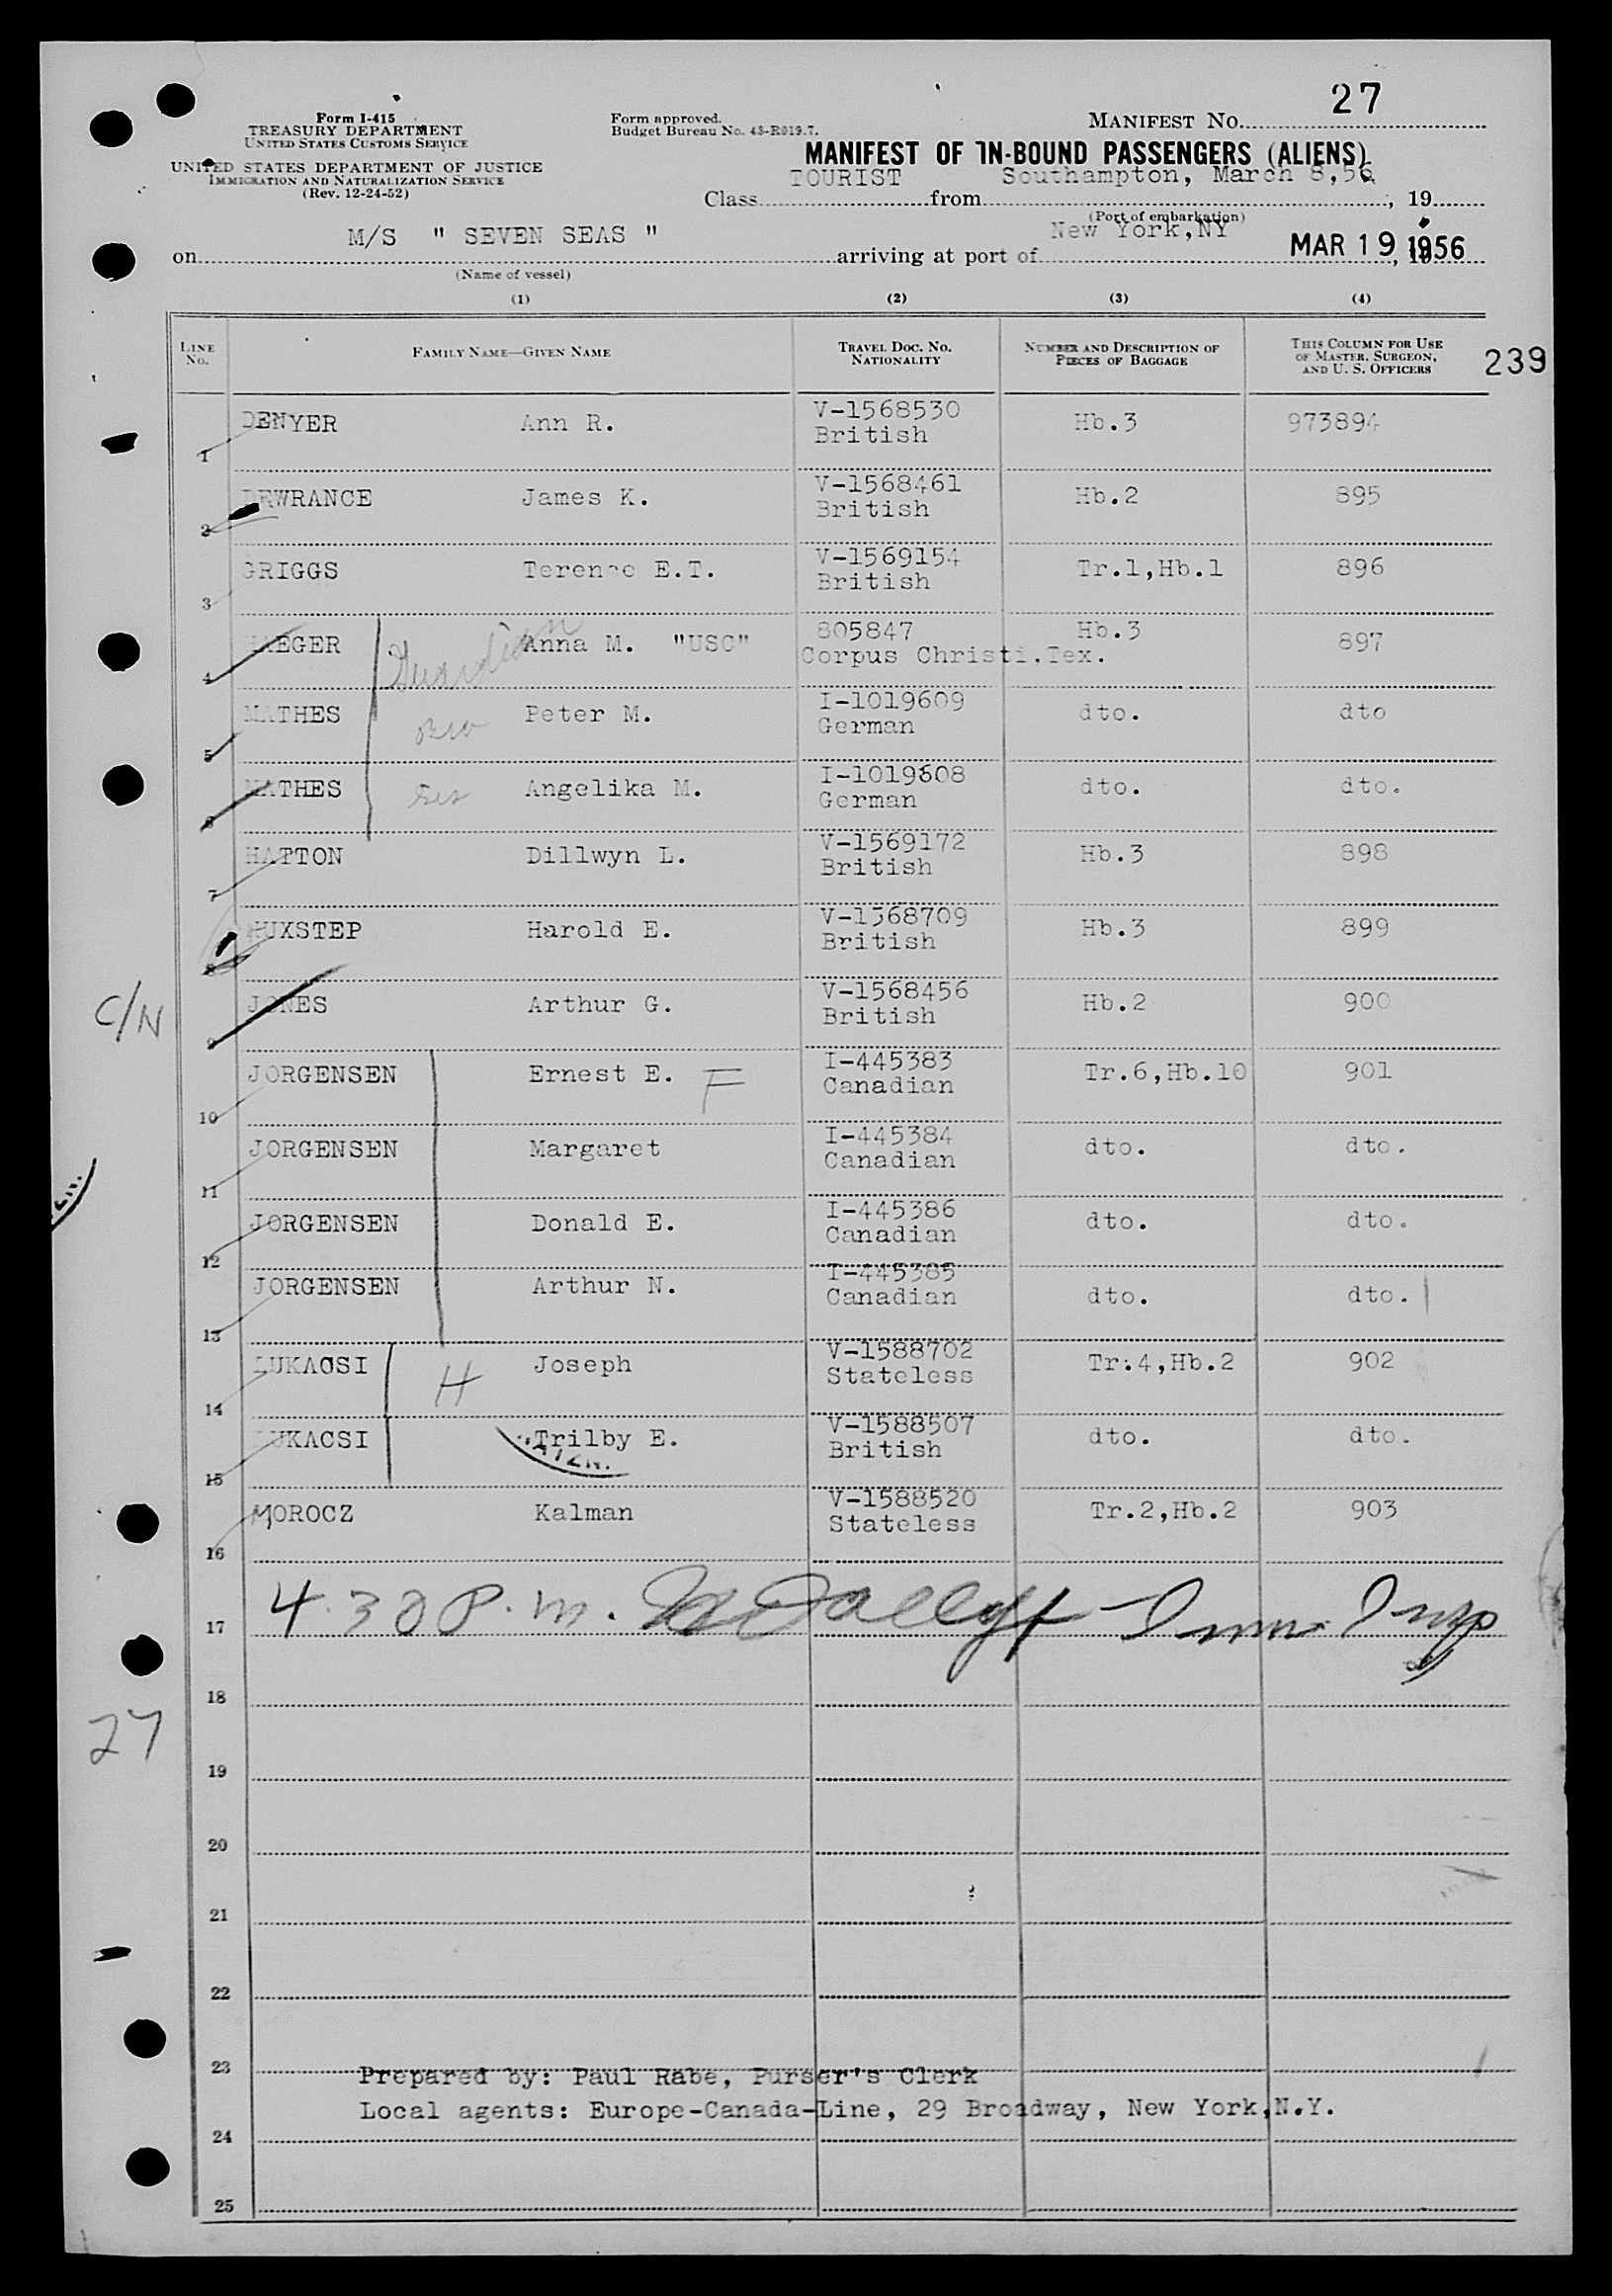 27
Form I-415
TREASURY DEPARTMENT
UNITED STATES CUSTOMS SERVICE
UNITED STATES DEPARTMENT OF JUSTICE
IMMIGRATION AND NATURALIZATION SERVICE
(Rev. 12-24-52)
Form approved.
Budget Bureau No. 43-R019.7.
MANIFEST NO.
MANIFEST OF IN-BOUND PASSENGERS (ALIENS)
Class TOURIST from Southampton, March 8,56, 19
(Port of embarkation)
on M/S " SEVEN SEAS " arriving at port of New York,NY MAR 19 1956
(Name of vessel)
(1) (2) (3) (4)
LINE No. FAMILY NAME—GIVEN NAME TRAVEL DOC. NO. NATIONALITY NUMBER AND DESCRIPTION OF PIECES OF BAGGAGE THIS COLUMN FOR USE OF MASTER, SURGEON, AND U. S. OFFICERS 239
1 DENYER Ann R. V-1568530 British Hb.3 973894
2 DEWRANCE James K. V-1568461 British Hb.2 895
3 GRIGGS Terence E.T. V-1569154 British Tr.1,Hb.1 896
4 HAEGER Guardian Anna M. "USC" 805847 Corpus Christi.Tex. Hb.3 897
5 MATHES Bro Peter M. I-1019609 German dto. dto
6 MATHES Sis Angelika M. I-1019608 German dto. dto.
7 HATTON Dillwyn L. V-1569172 British Hb.3 898
8 HUXSTEP Harold E. V-1568709 British Hb.3 899
C/N
9 JONES Arthur G. V-1568456 British Hb.2 900
10 JORGENSEN Ernest E. F I-445383 Canadian Tr.6,Hb.10 901
11 JORGENSEN Margaret I-445384 Canadian dto. dto.
12 JORGENSEN Donald E. I-445386 Canadian dto. dto.
13 JORGENSEN Arthur N. I-445385 Canadian dto. dto.
14 LUKACSI H Joseph V-1588702 Stateless Tr.4,Hb.2 902
15 LUKACSI Trilby E. V-1588507 British dto. dto.
16 MOROCZ Kalman V-1588520 Stateless Tr.2,Hb.2 903
17 4.30 P.m. Imm Insp
18
27
19
20
21
22
23 Prepared by: Paul Rabe, Purser's Clerk
Local agents: Europe-Canada-Line, 29 Broadway, New York,N.Y.
24
25